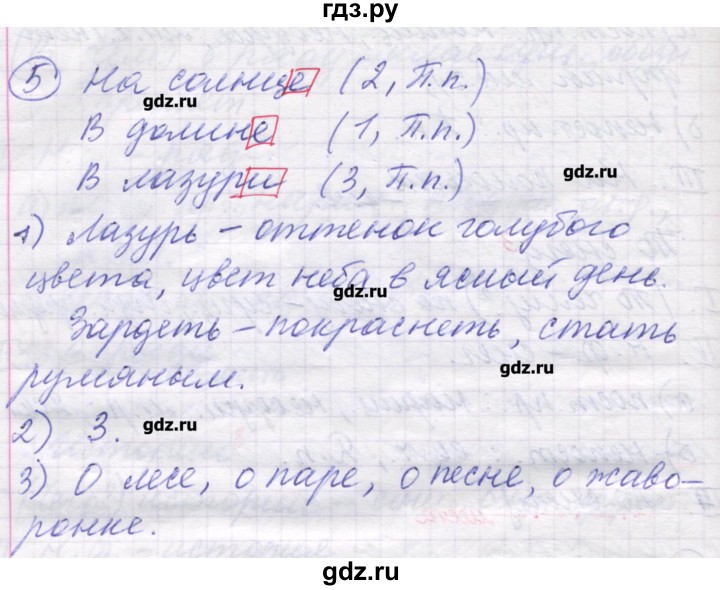 гдз.ру
5 На солнце (2, П.п.)
gdz.ru
В долине (1, П.п.)
В лазури (3, П.п.)
gdz.ru
1) Лазурь – оттенок голубого
цвета, цвет неба в ясный день.
gdz.ru
Зардеть – покраснеть, стать
румяным.
gdz.ru
2) 3.
gdz.ru
3) О лесе, о паре, о песне, о жаво-
ронке.
gdz.ru